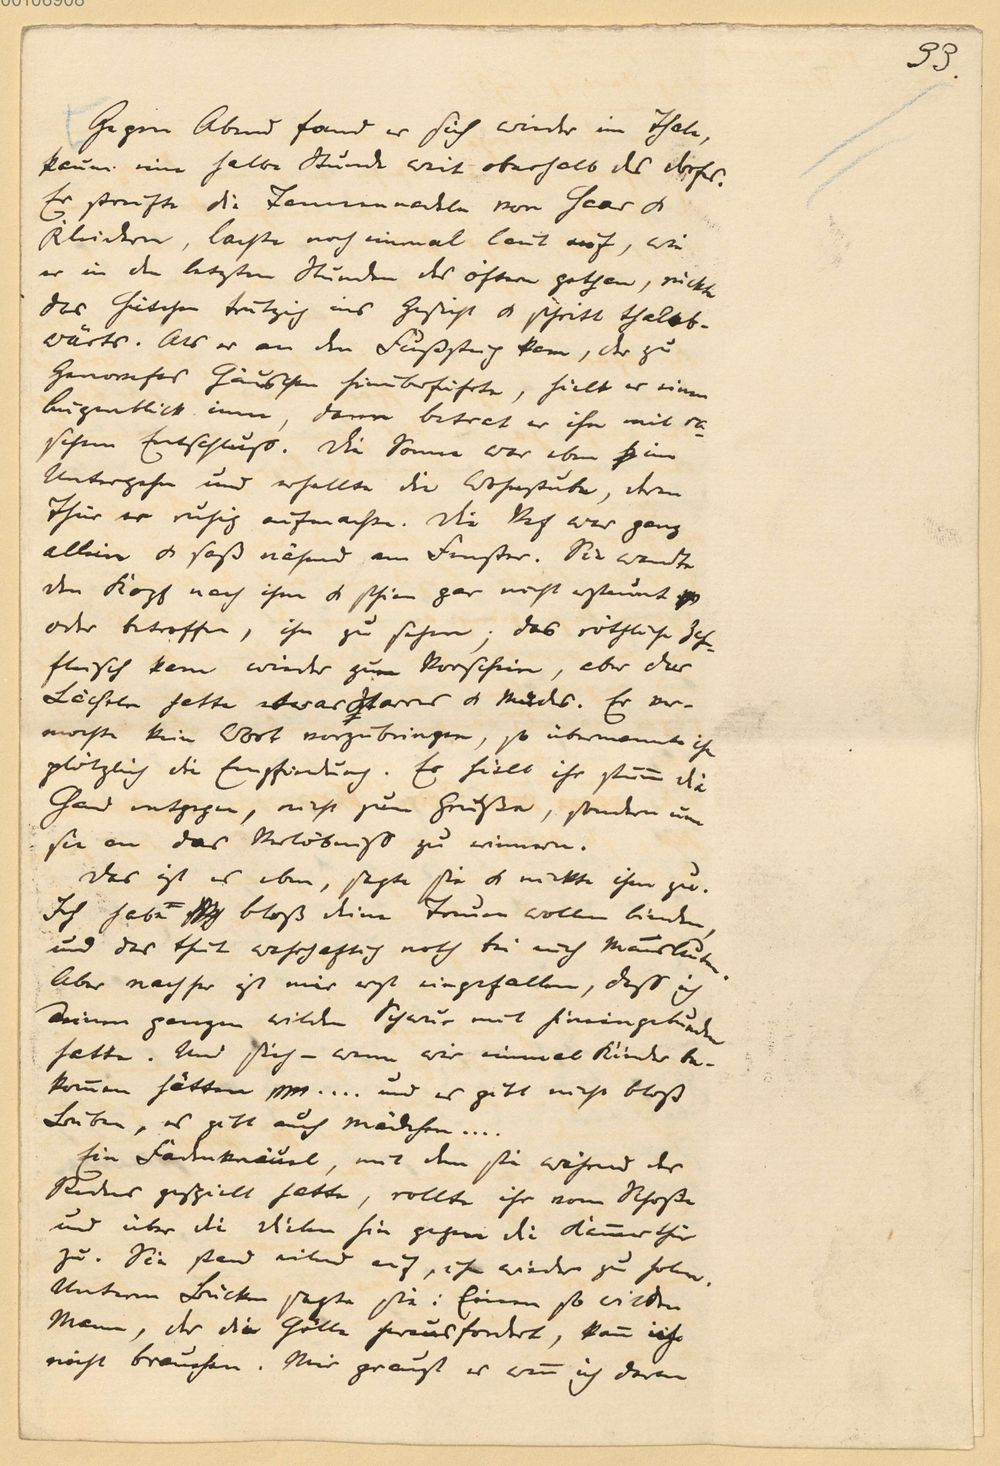 00106908
33.
Gegen Abend fand er sich wieder im Thale,
kaum eine halbe Stunde weit oberhalb des Dorfes.
Er streifte die Tannennadeln von Haar &
Kleidern, lachte noch einmal laut auf, wie
er in den letzten Stunden des öftern gethan, rückte
das Hütchen trutzig ins Gesicht & schritt thalab-
wärts. Als er an den Fußsteig kam, der zu
Genovefas Häuschen hinüberführte, hielt er einen
Augenblick inne, dann betrat er ihn mit ra-
schem Entschluss. Die Sonne war eben im
Untergehn und erhellte die Wohnstube, deren
Thür er ruhig aufmachte. Die Vef war ganz
allein & saß nähend am Fenster. Sie wandte
den Kopf nach ihm & schien gar nicht erstaunt
oder betroffen, ihn zu sehen; das röthliche Zah-
fleisch kam wieder zum Vorschein, aber das
Lächeln hatte etwas Starres & Müdes. Er ver-
mochte kein Wort vorzubringen, so übermannte ihn
plötzlich die Empfindung. Er hielt ihr stum̅ die
Hand entgegen, nicht zum Gruße, sondern um
sie an das Verlöbniß zu erinnern.
Das ist es eben, sagte sie & nickte ihm zu.
Ich habe bloß deine Treue wollen binden,
und das thut wahrhaftig noth bei euch Mannsleuten.
Aber nachher ist mir erst eingefallen, dass ich
deinen ganzen wilden Schwur mit hineingebunden
hatte. Und sieh – wenn wir einmal Kinder be-
kom̅en hätten .... und es gibt nicht bloß
Buben, es gibt auch Mädchen ....
Ein Fadenknäuel, mit dem sie während der
Redens gespielt hatte, rollte ihr vom Schoße
und über die Dielen hin gegen die Kam̅erthür
zu. Sie stand eilend auf, ihn wieder zu holen.
Unterm Bücken sagte sie: Einen so wilden
Mann, der die Hölle herausfordert, kan̅ ich
nicht brauchen. Mir graust es wen̅ ich daran